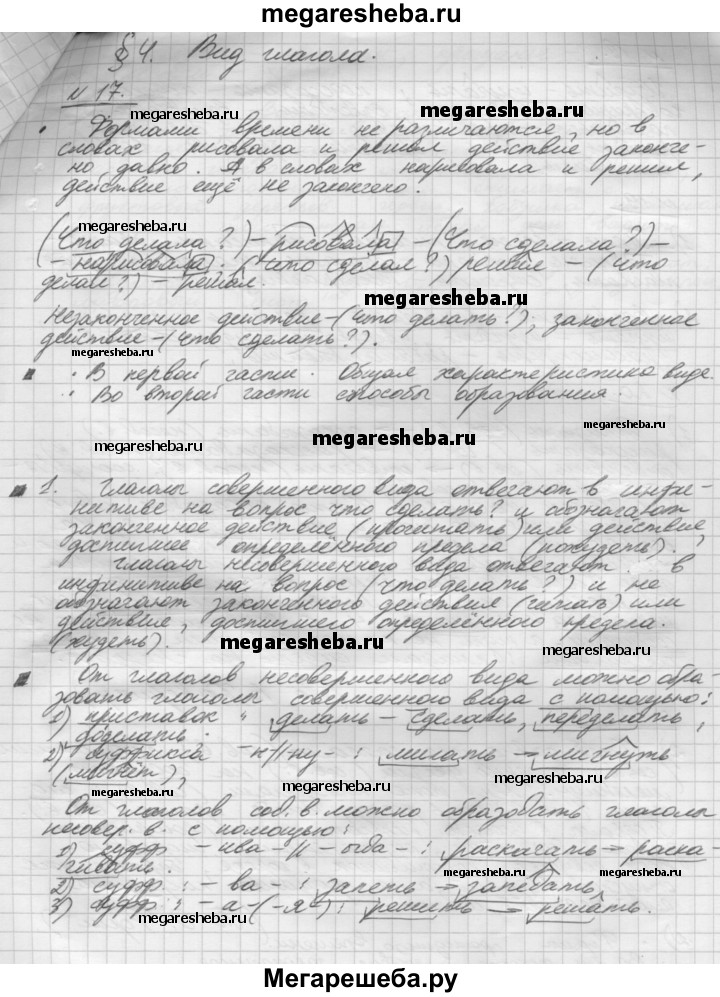 megaresheba.ru
§ 4. Вид глагола.
N 17.
megaresheba.ru
megaresheba.ru
• Формами времени не различаются, но в
словах рисовала и решал действие законче-
но давно. А в словах нарисовала и решил,
действие ещё не закончено.
megaresheba.ru
(Что делала?) – рисовала – (Что сделала?) –
– нарисовала. (Что сделал?) решил – (что
делал?) – решал.
megaresheba.ru
Незаконченное действие – (что делать?), законченное
действие – (что сделать?).
megaresheba.ru
• В первой части. Общая характеристика вида.
• Во второй части способы образования.
megaresheba.ru
megaresheba.ru
megaresheba.ru
1. Глаголы совершенного вида отвечают в инфи-
нитиве на вопрос что сделать? и обозначают
законченное действие (прочитать) или действие,
достигшее определённого предела (похудеть).
Глаголы несовершенного вида отвечают в
инфинитиве на вопрос (что делать?) и не
обозначают законченного действия (читать) или
действие, достигшего определённого предела.
(худеть).
megaresheba.ru
megaresheba.ru
От глаголов несовершенного вида можно обра-
зовать глаголы совершенного вида с помощью:
1) приставок: делать – сделать, переделать,
доделать.
2) суффикса -н-//-ну- : мигать → мигнуть
(мигнёт),
megaresheba.ru
megaresheba.ru
От глаголов сов. в. можно образовать глаголы
несовер. в. с помощью:
1) суфф. – ива – // – ыва – : раскачать → раска-
чивать.
megaresheba.ru
megaresheba.ru
2) суфф. : – ва – : запеть → запевать,
3) суфф. : – а – (-я-) : решить → решать.
megaresheba.ru
megaresheba.ru
Мегарешеба.ру